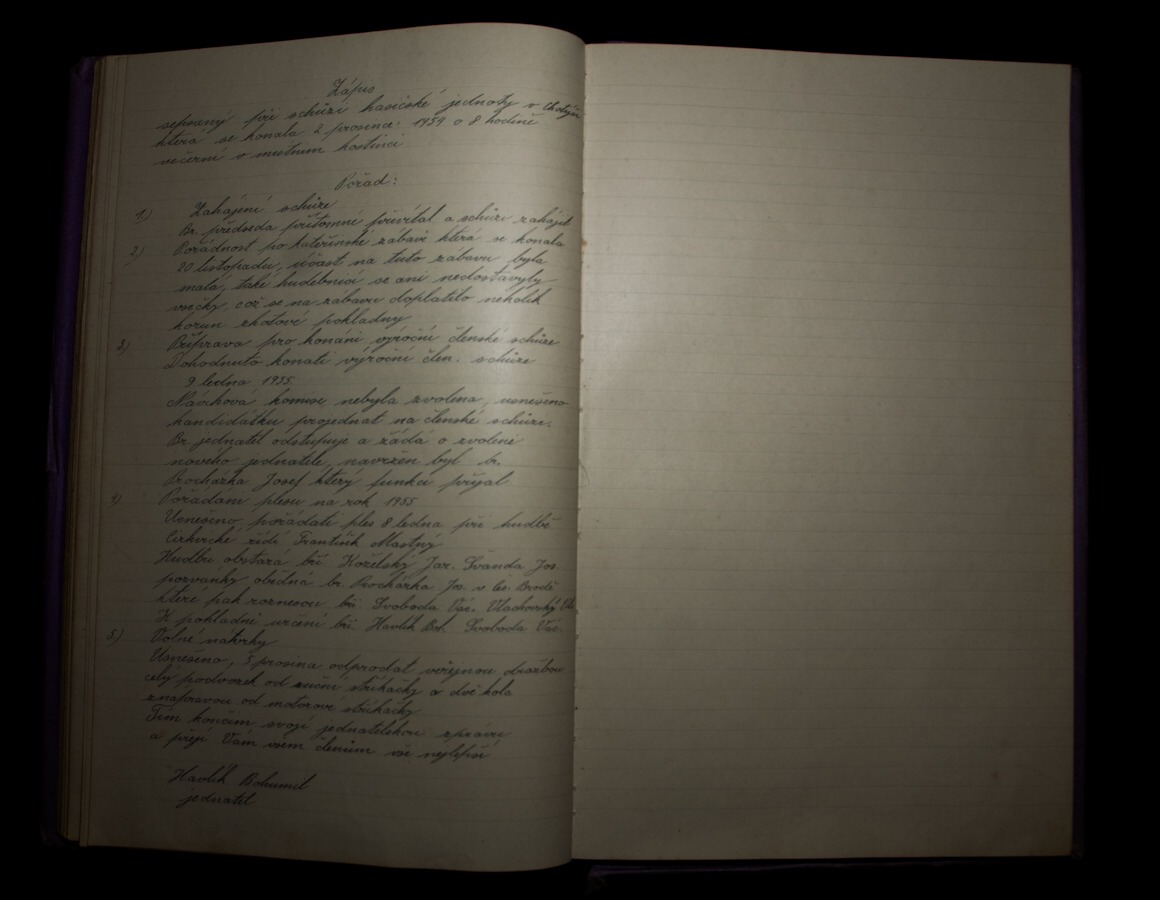 Zápis
sepsaný při schůzi hasičské jednoty v Chotýši
která se konala 2 prosence. 1954 o 8 hodině
večerní v mistnim hostinci
Pořad:
1.) Zahájení schůze
Br. předseda přítomné přivítal a schůzi zahájil
2.) Pořádnost po kateřinské zábavě která se konala
20 listopadu, účast na tuto zábavu byla
malá, také hudebnici se ani nedostavyly
všicky, což se na zabavu doplatilo několik
korun zhotové pokladny
3.) Příprava pro konáni výroční členské schůze
Dohodnuto konati výroční člen. schůze
9 ledna 1955.
Návrhová komise nebyla zvolena, usnešeno
kandidátku projednat na členské schůzi.
Br. jednatel odstupuje a žádá o zvoleni
nového jednatele, navržen byl br.
Procházka Josef který funkci přijal
4.) Pořádani plesu na rok 1955
Usnešeno pořádati ples 8 ledna při hudbě
řídí František Mastný
Hudbu obstará bři Kozelský Jar. Švanda Jos.
pozvánky obědná br. Procházka Jos. v Čes. Brodě
které pak roznesou bři. Svoboda Vác. Vlachovský
K pokladni určeni bři. Havlík Boh. Svoboda Vác.
5.) Volné návrhy
Usnešeno, 5 prosina odprodat veřejnou dražbou
celý podvozek od ruční stříkačky a dvě kola
znápravou od motorové stříkačky
Tím končim svojí jednatelskou zprávu
a přeji Vám všem členům vše nejlepší
Havlík Bohumil
jednatel